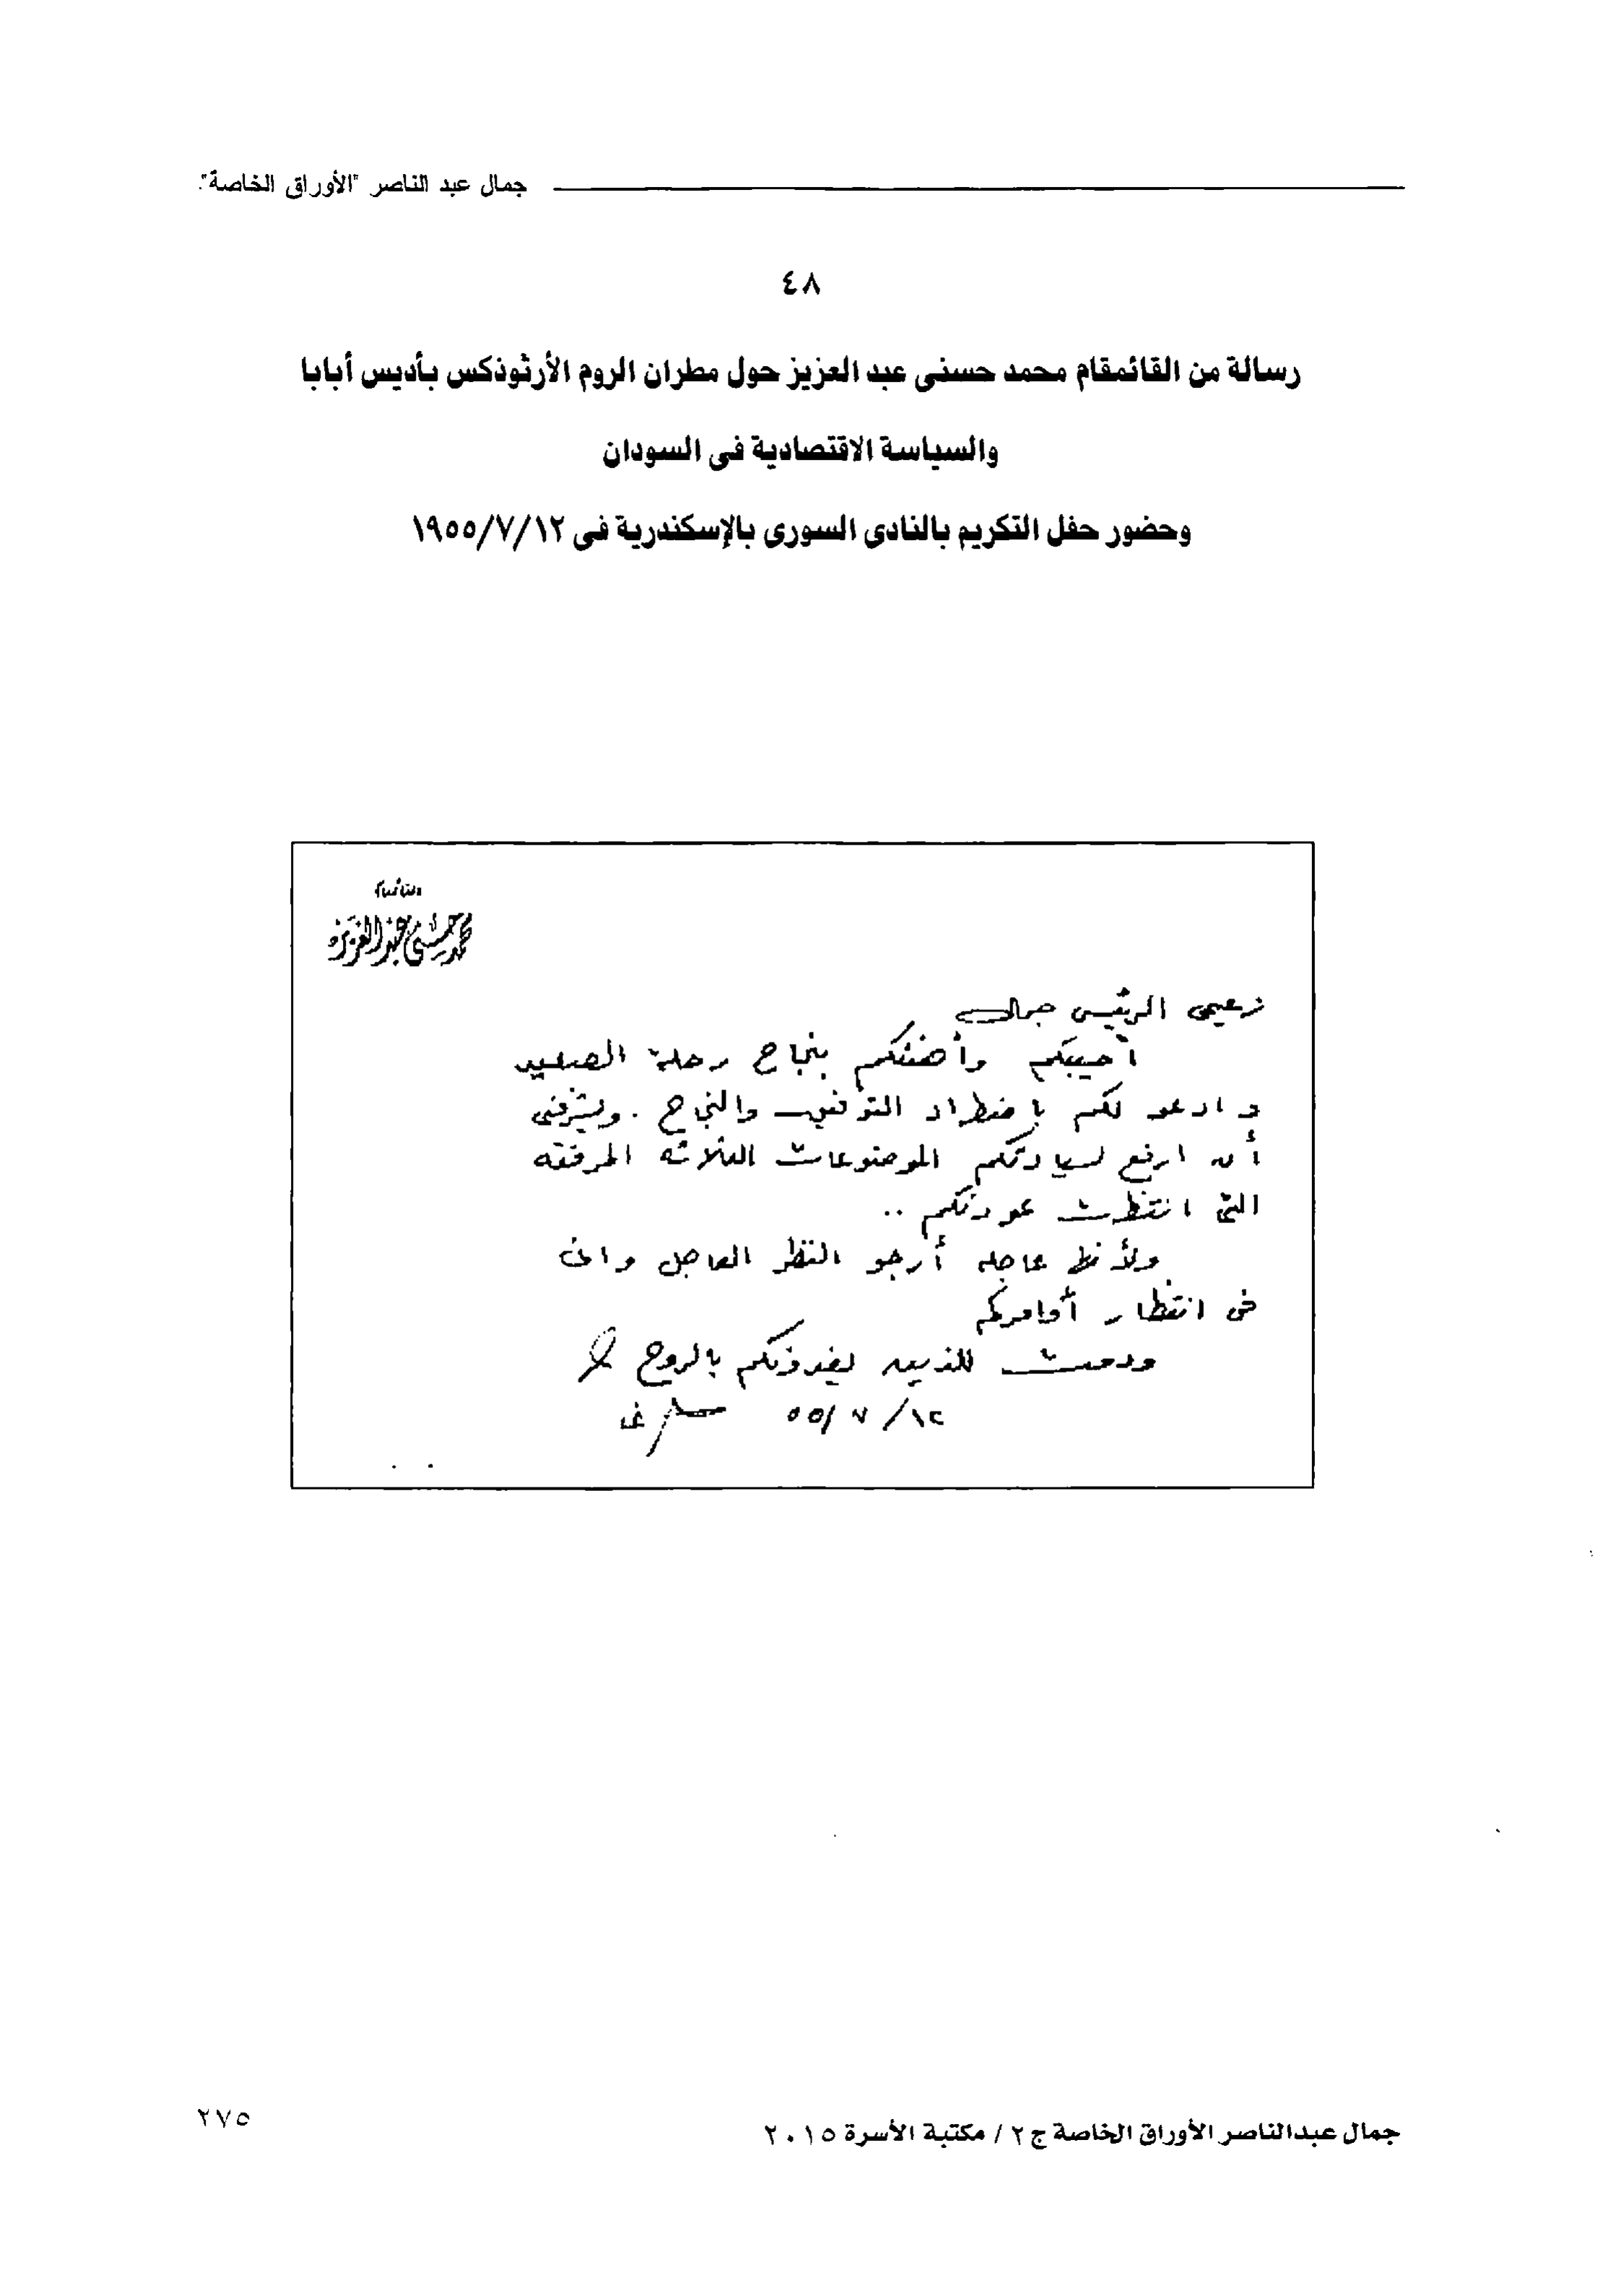 جمال عبد الناصر "الأوراق الخاصة".
٤٨
رسالة من القائمقام محمد حسنى عبد العزيز حول مطران الروم الأرثوذكس بأديس أبابا
والسياسة الاقتصادية فى السودان
وحضور حفل التكريم بالنادى السورى بالإسكندرية فى ١٩٥٥/٧/١٢
محمد حسنى عبد العزيز
زعيمى الرئيس جمال
أحييكم وأهنئكم بنجاح رحلة الصعيد
وادعو لكم باضطراد التوفيق والنجاح . ويشرفنى
أن ارفع لسيادتكم الموضوعات الثلاثه المرفقه
التى انتظرت عودتكم ..
ولأنها عاجله أرجو النظر العاجل وانى
فى انتظار أوامركم
ودمت للذين يفدونكم بالروح
١٢/ ٧ /٥٥
جمال عبدالناصر الأوراق الخاصة ج ٢ / مكتبة الأسرة ٢٠١٥
٢٧٥